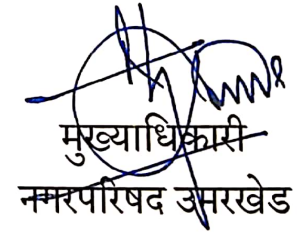 मुख्याधिकारी
नगरपरिषद उमरखेड